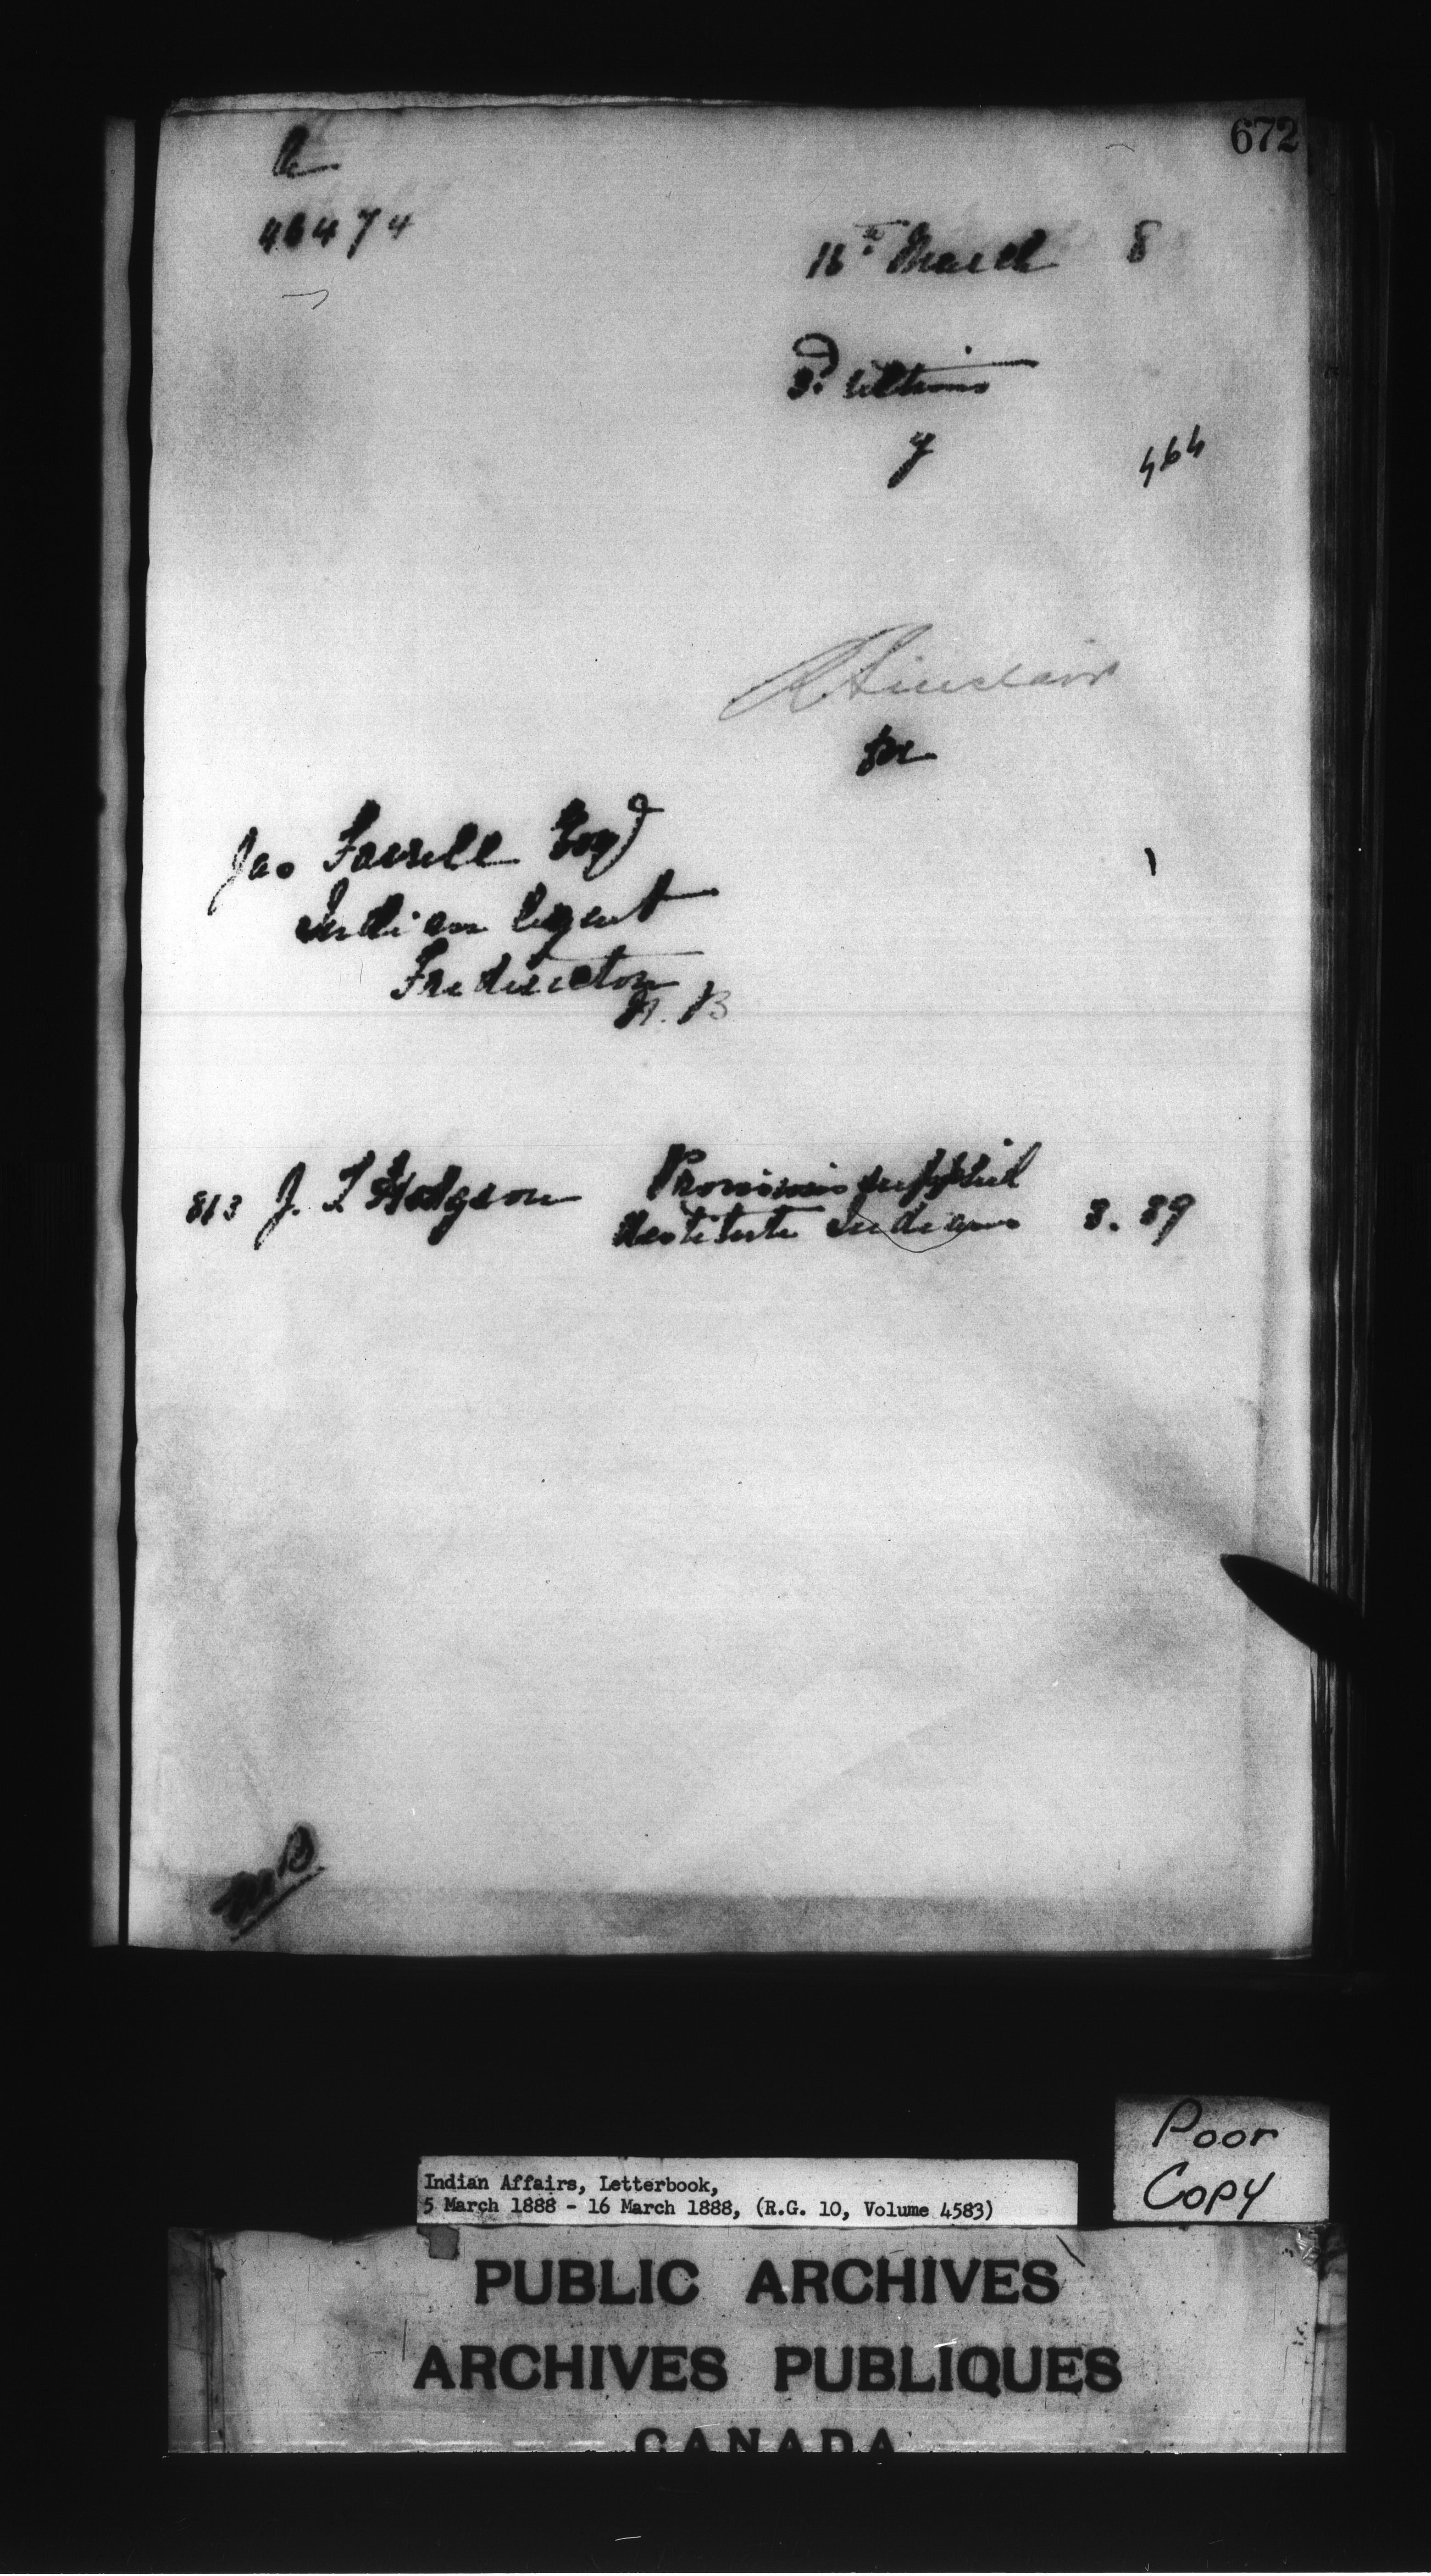 672
46474
16th March 8
3d ultimo
y
464
R Sinclair
for
Jas Farrell Esq
Indian Agent
Fredericton
N. B
813 J. T Hodgson Provisions supplied
destitute Indians 3. 89
Poor
Copy
Indian Affairs, Letterbook,
5 March 1888 - 16 March 1888, (R.G. 10, Volume 4583)
PUBLIC ARCHIVES
ARCHIVES PUBLIQUES
CANADA